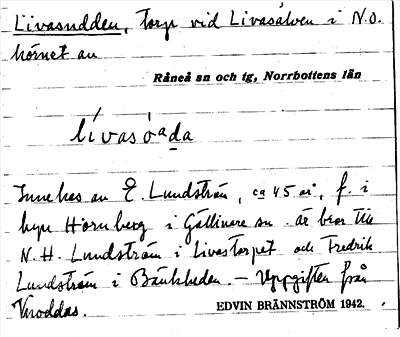 Livasudden, torp vid Livasälven i N.O.
hörnet av
Råneå sn och tg, Norrbottens län
lívasóada
Innehas av E. Lundström, ca 45 år, f. i
byn Hornberg i Gällivare sn. Är bror till
N.H. Lundström i Livastorpet och Fredrik
Lundström i Bänkheden. – Uppgiften från
Vnoddas.
EDVIN BRÄNNSTRÖM 1942.